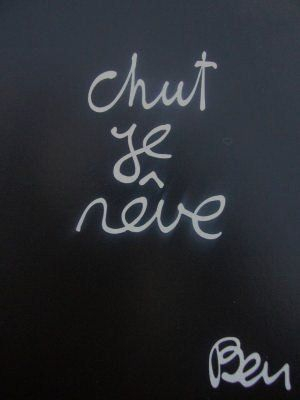 chut
je
rêve
Ben